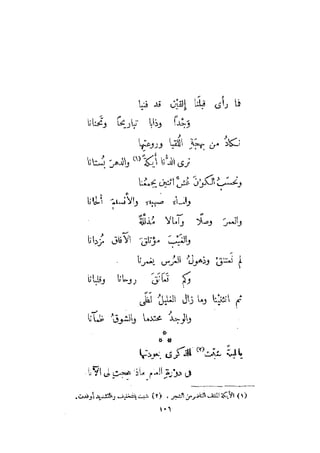 فما رأى قبلنا إلفين قد فنيا
وجدًا وذابا تباريحًا وتحنانا
نكاد من بهجة اللقيا وروعتها
نرى الدنا أيكةً (١) والدهر بستانا
ونحسب الكون عش اثنين يجمعنا
والماء صهباء والأنسام ألحانا
والعمر وصلًا وآمالًا
والغيب مؤتلق الآفاق مزدانا
لم نعتنق وذهول العرس يغمرنا
وكم تعانق روحانا وقلبانا
ثم انثنينا وما زال الغليل لظى
والوجد محتدما والشوق ظمآنا
*
* *
ياليلة شبت (٢) الذكرى بعودتها
في دورة العام ماذا هجت لي الآنا
(١) الأيكة الملتف الناضر من الشجر . (٢) شبت بالتخفيف والتشديد أوقدت .
١٠٦